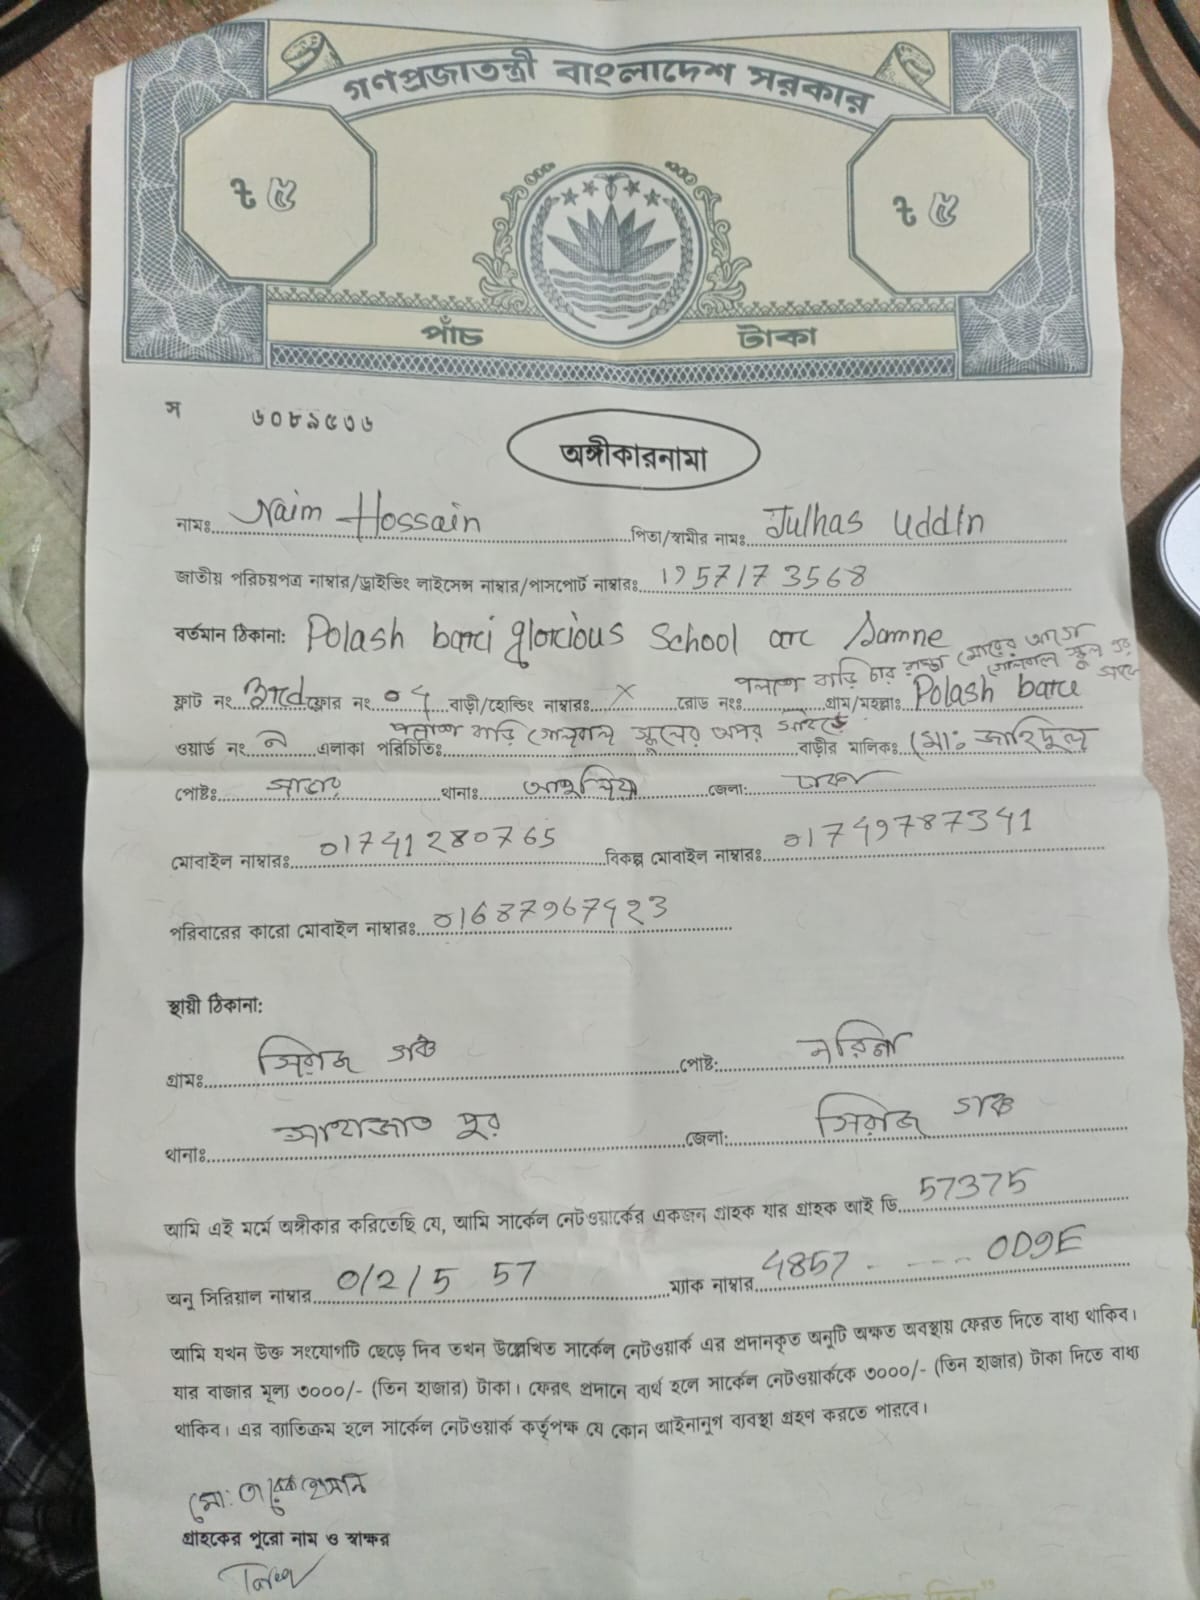 গণপ্রজাতন্ত্রী বাংলাদেশ সরকার
৳ ৫ ৳ ৫
পাঁচ টাকা
স ৬০৮৯৫৩৬
অঙ্গীকারনামা
নামঃ Naim Hossain পিতা/স্বামীর নামঃ Julhas Uddin
জাতীয় পরিচয়পত্র নাম্বার/ড্রাইভিং লাইসেন্স নাম্বার/পাসপোর্ট নাম্বারঃ 1957173568
বর্তমান ঠিকানা: Polash bari glorious School ar Samne
পলাশ বাড়ি চার রাস্তা মোরের আগে
ফ্লাট নং 3rd ফ্লোর নং 04 বাড়ী/হোল্ডিং নাম্বারঃ X রোড নংঃ গ্রাম/মহল্লাঃ Polash bari
ওয়ার্ড নং এলাকা পরিচিতিঃ পলাশ বাড়ি স্কুলের অপর সাইডে বাড়ীর মালিকঃ মো: জাহিদুল
পোষ্টঃ সাভার থানাঃ আশুলিয়া জেলা: ঢাকা
মোবাইল নাম্বারঃ 01741280765 বিকল্প মোবাইল নাম্বারঃ 01749787341
পরিবারের কারো মোবাইল নাম্বারঃ 01687967423
স্থায়ী ঠিকানা:
গ্রামঃ সিরাজ গঞ্জ পোষ্ট: নরিনা
থানাঃ সাহাজাত পুর জেলা: সিরাজ গঞ্জ
আমি এই মর্মে অঙ্গীকার করিতেছি যে, আমি সার্কেল নেটওয়ার্কের একজন গ্রাহক যার গ্রাহক আই ডি 57375
অনু সিরিয়াল নাম্বার 0/2/5 57 ম্যাক নাম্বার 4857 - ---- 0D9E
আমি যখন উক্ত সংযোগটি ছেড়ে দিব তখন উল্লেখিত সার্কেল নেটওয়ার্ক এর প্রদানকৃত অনুটি অক্ষত অবস্থায় ফেরত দিতে বাধ্য থাকিব।
যার বাজার মূল্য ৩০০০/- (তিন হাজার) টাকা। ফেরৎ প্রদানে ব্যর্থ হলে সার্কেল নেটওয়ার্ককে ৩০০০/- (তিন হাজার) টাকা দিতে বাধ্য
থাকিব। এর ব্যাতিক্রম হলে সার্কেল নেটওয়ার্ক কর্তৃপক্ষ যে কোন আইনানুগ ব্যবস্থা গ্রহণ করতে পারবে।
মো: তারেক হোসেন
গ্রাহকের পুরো নাম ও স্বাক্ষর